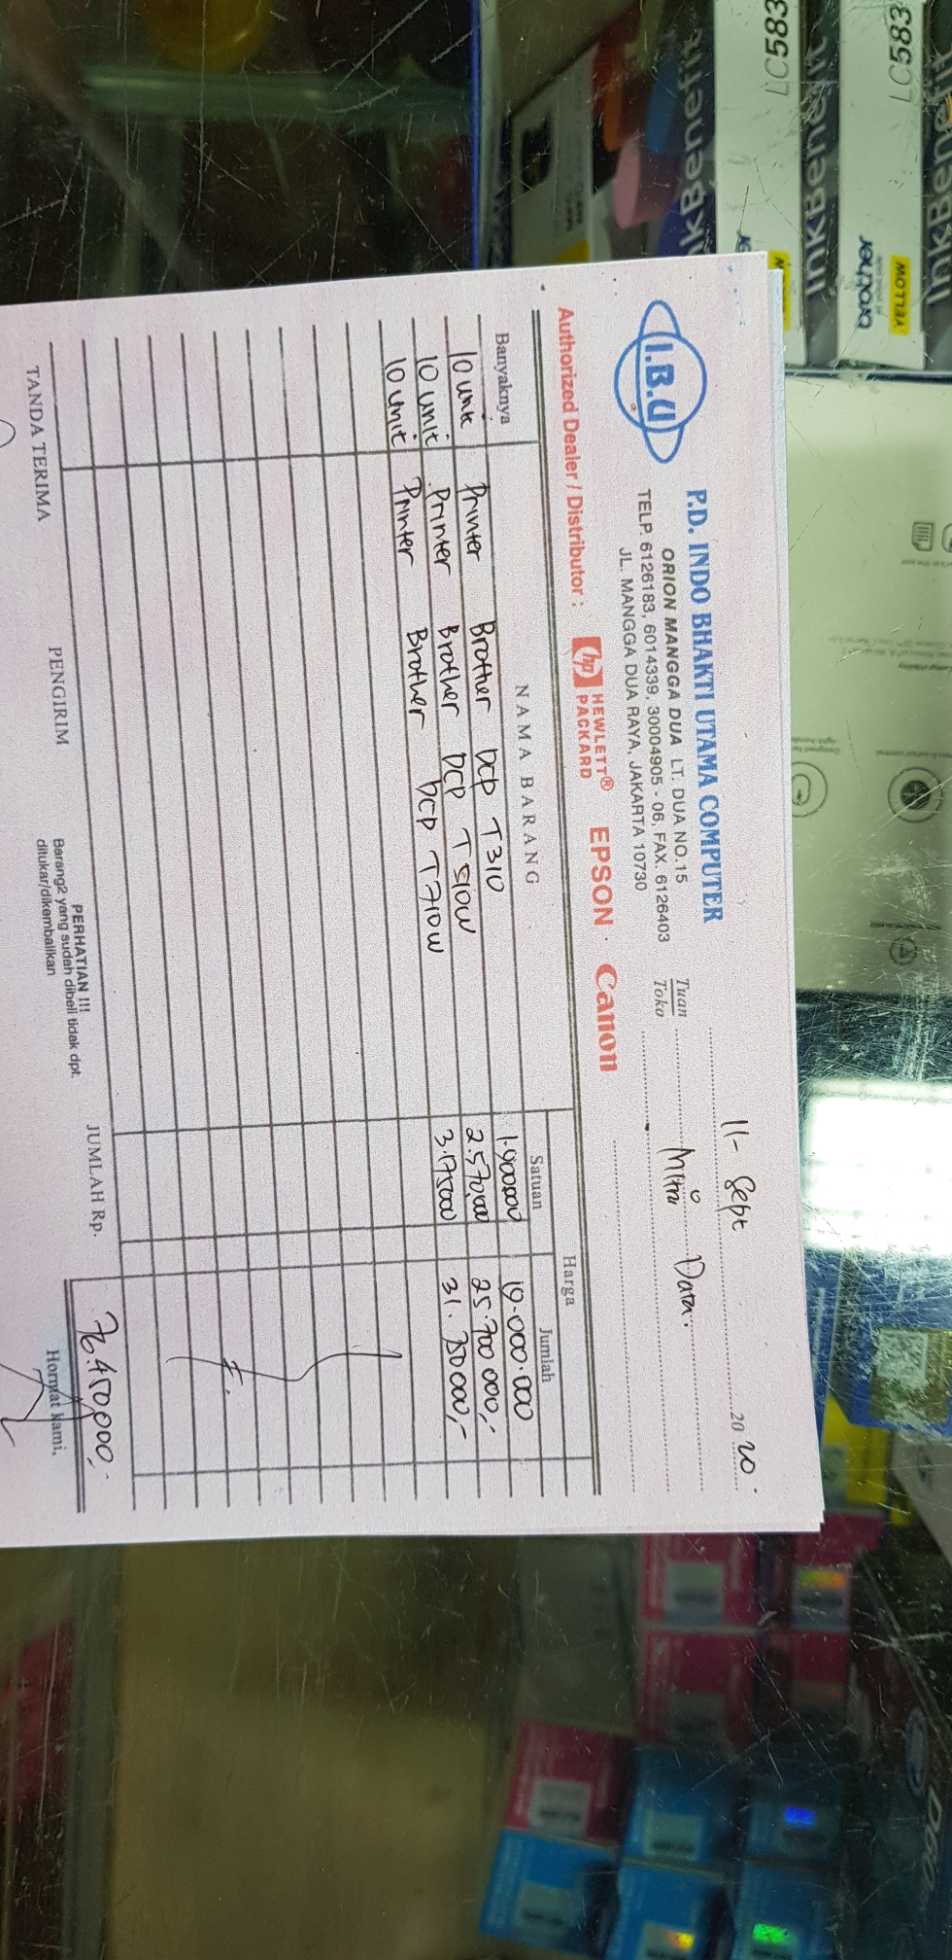 I.B.U
P.D. INDO BHAKTI UTAMA COMPUTER
ORION MANGGA DUA LT. DUA NO.15
TELP. 6126183, 6014339, 30004905 - 06, FAX. 6126403
JL. MANGGA DUA RAYA, JAKARTA 10730
11- Sept 2020
Tuan
Toko
Mitra Data.
Authorized Dealer / Distributor : hp HEWLETT® PACKARD EPSON Canon
Banyaknya NAMA BARANG Harga
Satuan Jumlah
10 unit Printer Brother DCP T310 1.900.000 19.000.000
10 unit Printer Brother DCP T510W 2.570.000 25.700 000,-
10 unit Printer Brother DCP T710W 3.175000
JUMLAH Rp. 76.450.000,-
TANDA TERIMA PENGIRIM
PERHATIAN !!!
Barang2 yang sudah dibeli tidak dpt.
ditukar/dikembalikan
Hormat kami,
LC583
LC583
InkBenefit
InkBenefit
brother
YELLOW